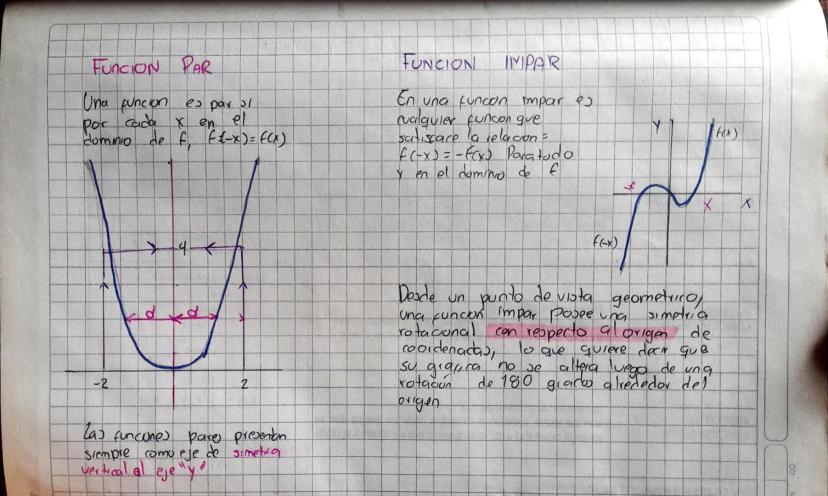 FUNCION PAR
Una funcion es par si
por cada x en el
dominio de f, f(-x)=f(x)
4
d d
-2 2
las funciones pares presentan
siempre como eje de simetria
vertical al eje "y"
FUNCION IMPAR
En una funcon impar es
cualquier funcon que
satisface la relacion=
f(-x)=-f(x) Para todo
y en el domino de f
Y
f(x)
-x
x
X
f(-x)
Desde un punto de vista geometrico,
una funcion impar posee una simetria
rotacional con respecto al origen de
coordenadas, lo que quiere decir que
su gigura no se altera luego de una
rotación de 180 grados alrededor del
origen
8